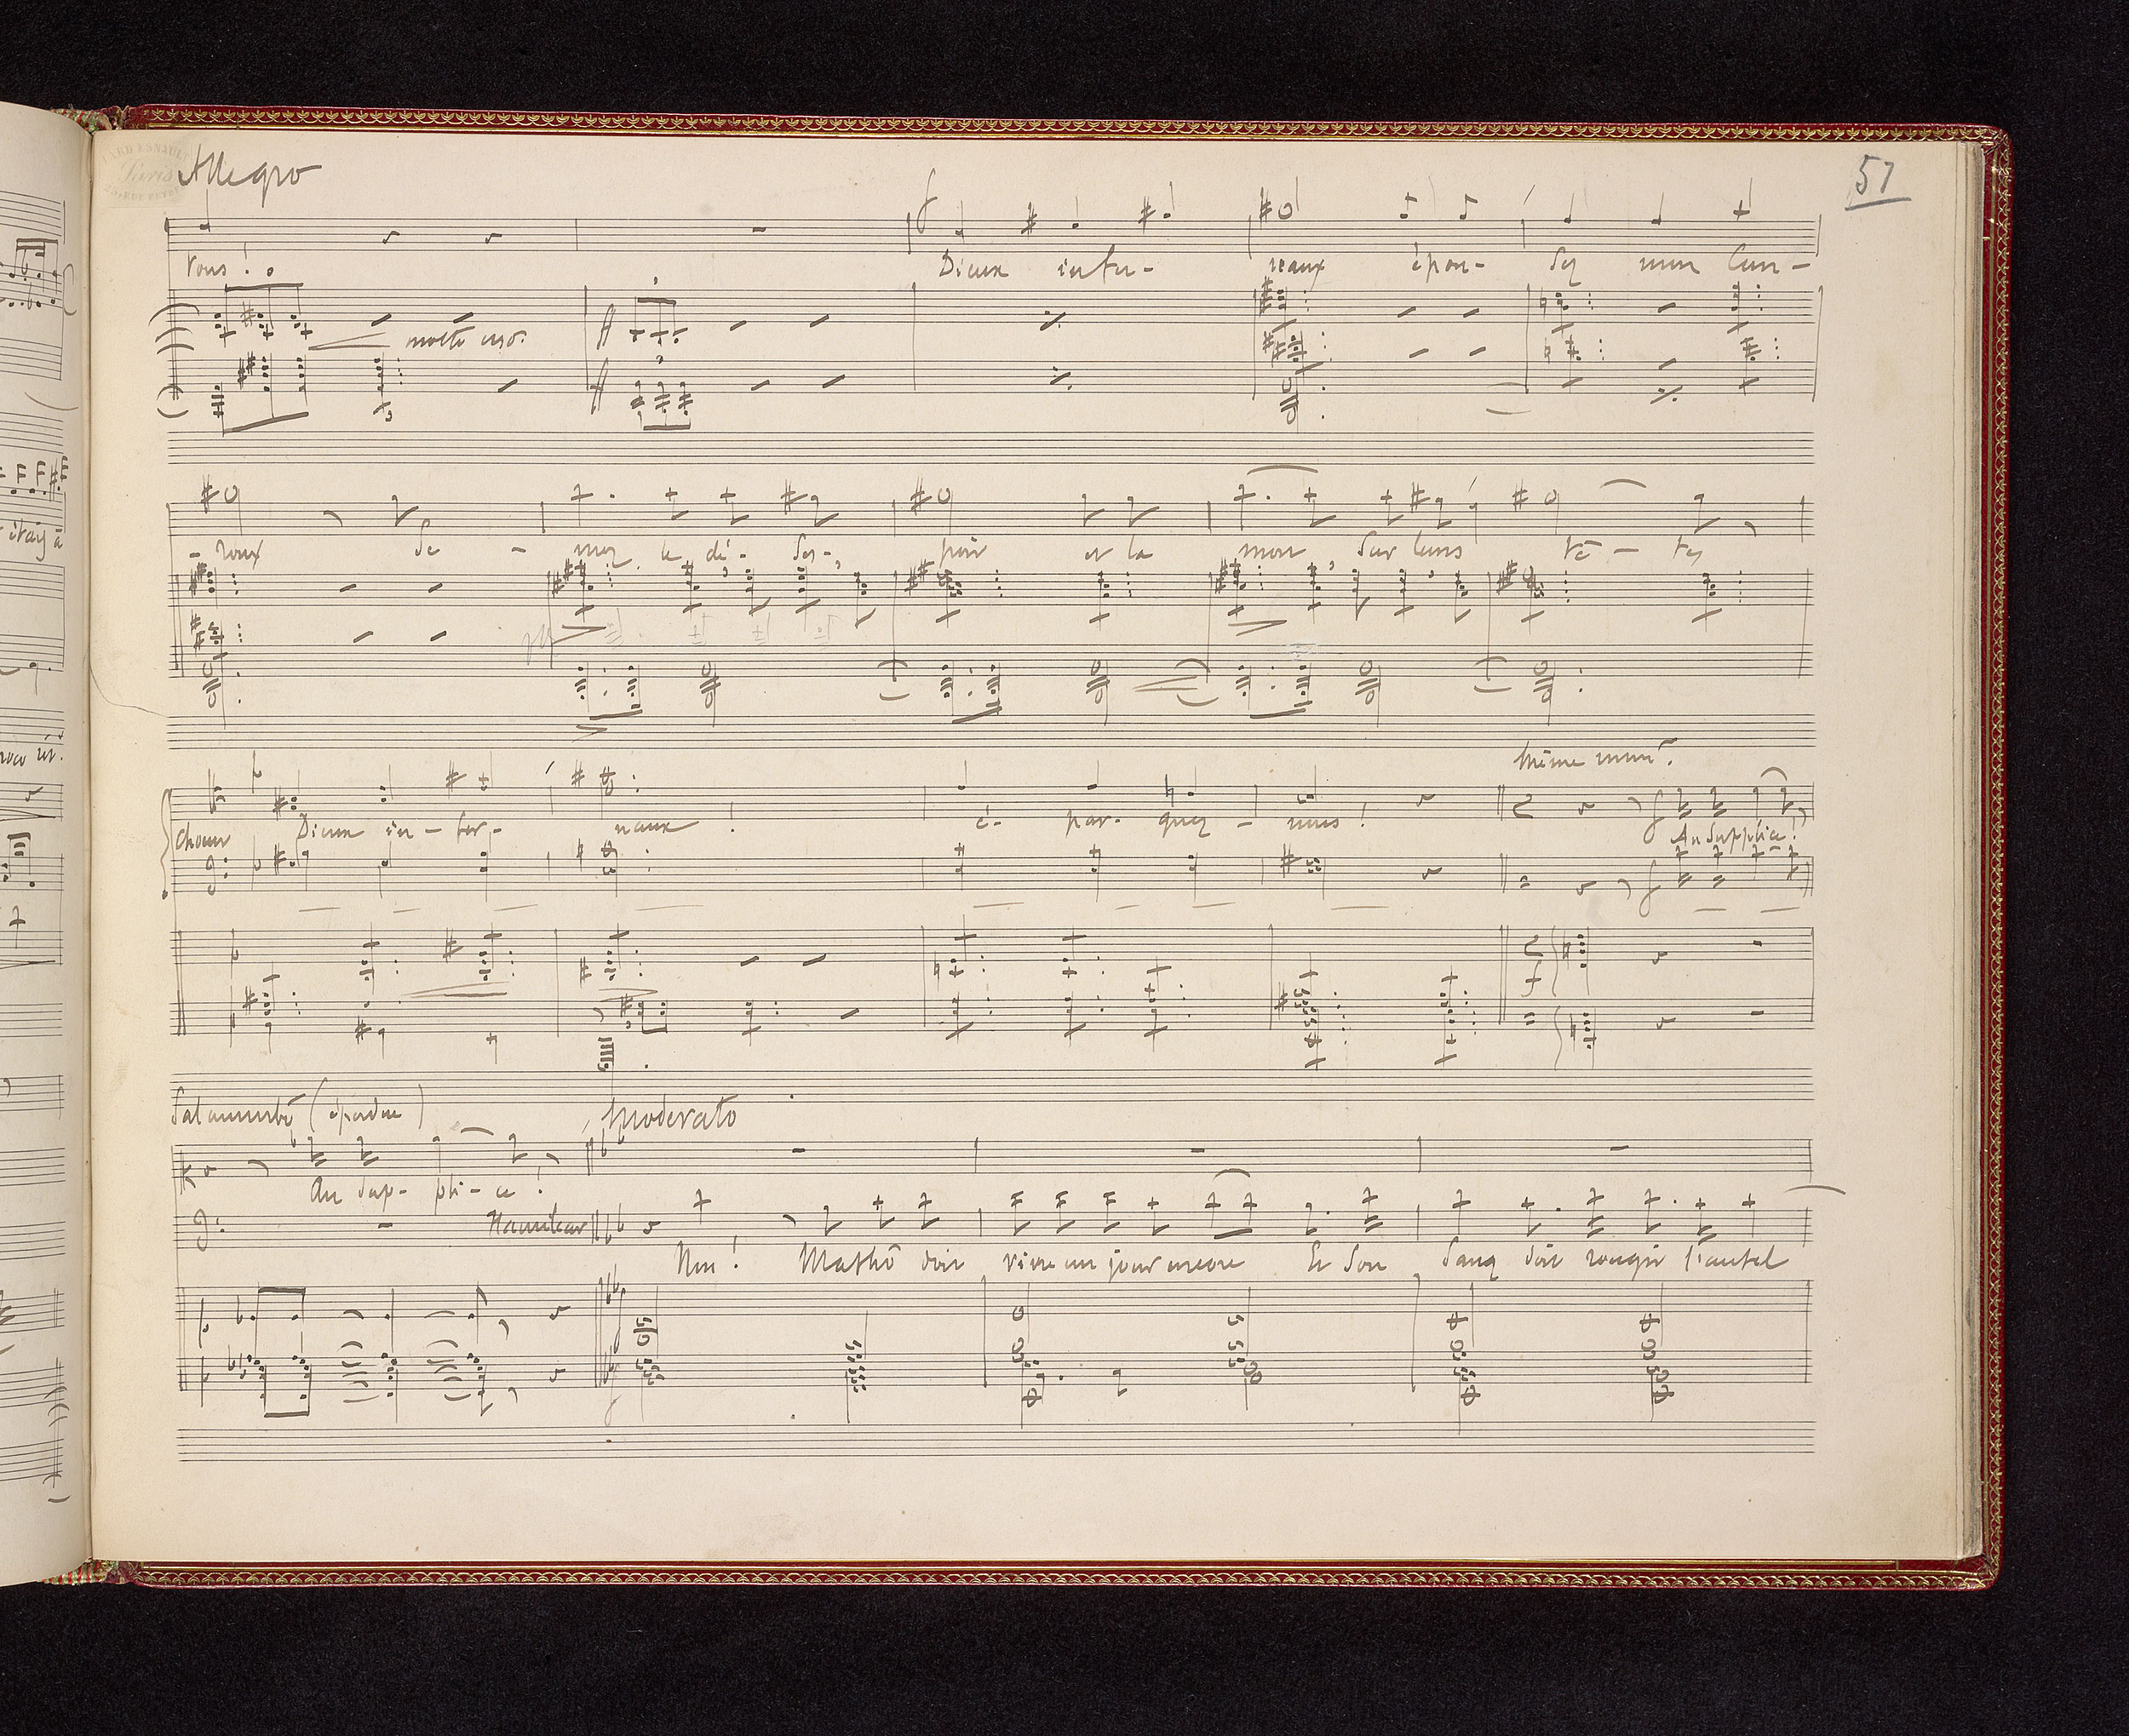 Allegro
57
vous!
Dieux infer- neaux épou- sez mon Cour-
molto cresc.
ff
ff
- roux Se - mez le dé- ses- poir et la mort sur leurs tê - tes
même mouvt.
Chœur Dieux in - fer- naux ! é- par- gnez - nous! Au supplice!
Salammbô (éperdue) Moderato
Au sup- pli - ce !
Hamilcar
Non! Mathô doit vivre un jour encore Et son sang doit rougir l'autel